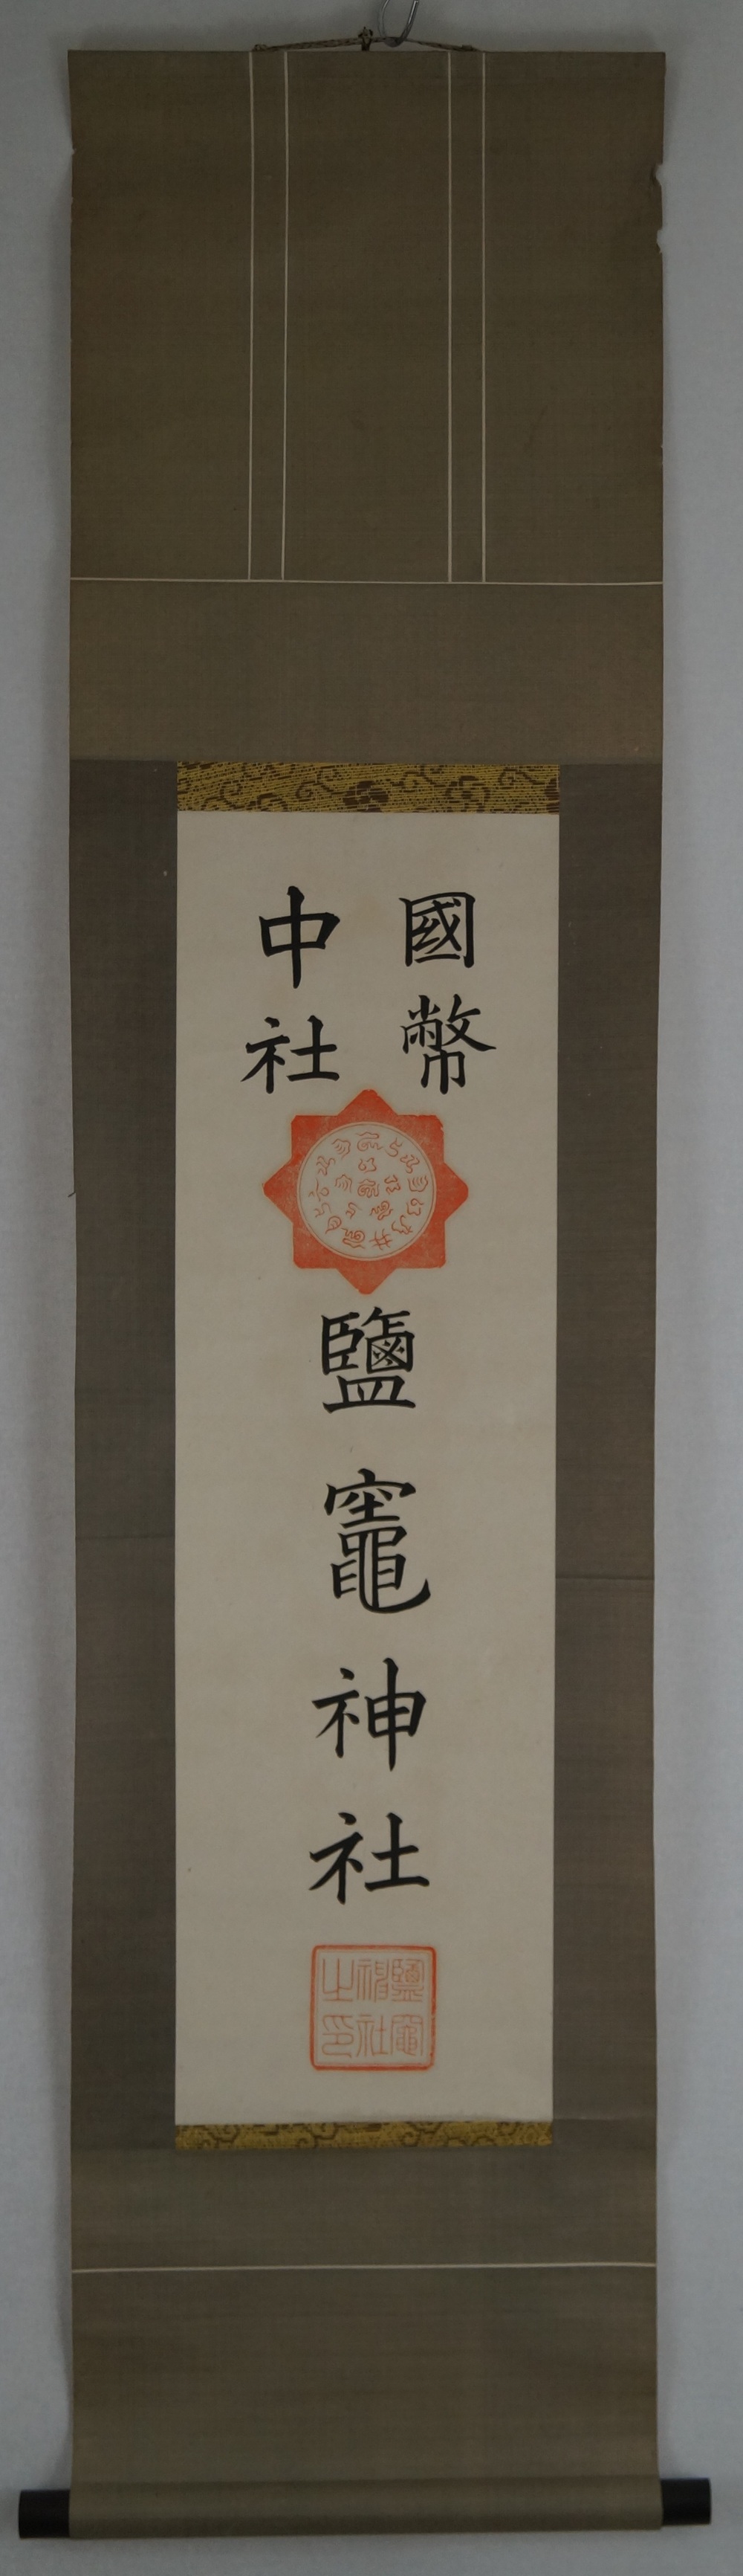 國幣
中社
鹽竈神社
鹽竈
神社
之印